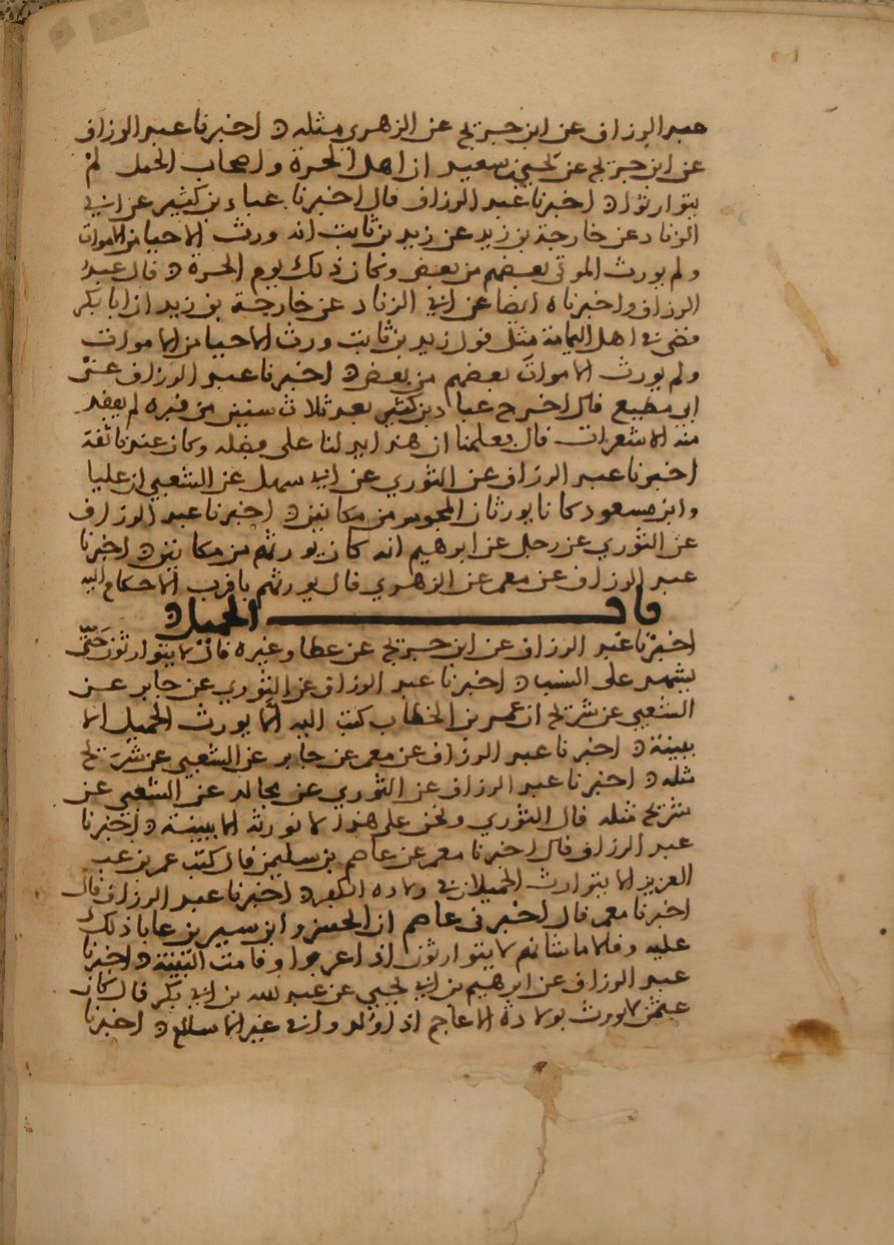 عبد الرزاق عن ابن جريج عن الزهري مثله ه اخبرنا عبد الرزاق
عن ابن جريج عن يحيى بن سعيد ان اهل الحرة واصحاب الجمل لم
يتوارثوا ه اخبرنا عبد الرزاق قال اخبرنا عباد بن كثير عن ابي
الزناد عن خارجة بن زيد عن زيد بن ثابت انه ورث الاحيا من الاموات
ولم يورث الموتى بعضهم من بعض وكان ذلك يوم الحرة ه قال عبد
الرزاق واخبرناه ايضا عن ابي الزناد عن خارجة بن زيد ان ابا بكر
قضى في اهل اليمامة مثل قول زيد بن ثابت ورث الاحيا من الاموات
ولم يورث الاموات بعضهم من بعض ه اخبرنا عبد الرزاق عن
ابي مطيع قال اخرج عباد بن كثير بعد ثلاث سنين من قبره لم يفقد
منه الا شعرات قال يعلمنا ان هذا يدلنا على فضله وكان عندنا ثقة
اخبرنا عبد الرزاق عن الثوري عن ابي سهل عن الشعبي ان عليا
وابن مسعود كانا يورثان المجوس من مكانين ه اخبرنا عبد الرزاق
عن الثوري عن رجل عن ابرهيم انه كان يورثهم من مكانين ه اخبرنا
عبد الرزاق عن معمر عن الزهري قال يورثهم باقرب الارحام اليه
باب الحميل ه
اخبرنا عبد الرزاق عن ابن جريج عن عطا وغيره قال لا يتوارثون حتى
يشهد على النسب ه اخبرنا عبد الرزاق عن الثوري عن جابر عن
الشعبي عن شريح ان عمر بن الخطاب كتب اليه الا يورث الحميل الا
ببينة ه اخبرنا عبد الرزاق عن معمر عن جابر عن الشعبي عن شريح
مثله ه اخبرنا عبد الرزاق عن الثوري عن مجالد عن الشعبي عن
شريح مثله قال الثوري ونحن على هذا لا نورثه الا ببينة ه اخبرنا
عبد الرزاق قال اخبرنا معمر عن عاصم بن سليمن قال كتب عمر بن عبد
العزيز الا يتوارث الحميلان في ولادة الكفر ه اخبرنا عبد الرزاق قال
اخبرنا معمر قال اخبرني عاصم ان الحسن وابن سيرين عابا ذلك
عليه وقالا ما شانهم لا يتوارثون اذا عرفوا وقامت البينة ه اخبرنا
عبد الرزاق عن ابرهيم بن ابي يحيى عن عبد الله بن ابي بكر قال كان
عثمن لا يورث بولادة الاعاجم اذا ولدوا في غير الاسلام ه اخبرنا